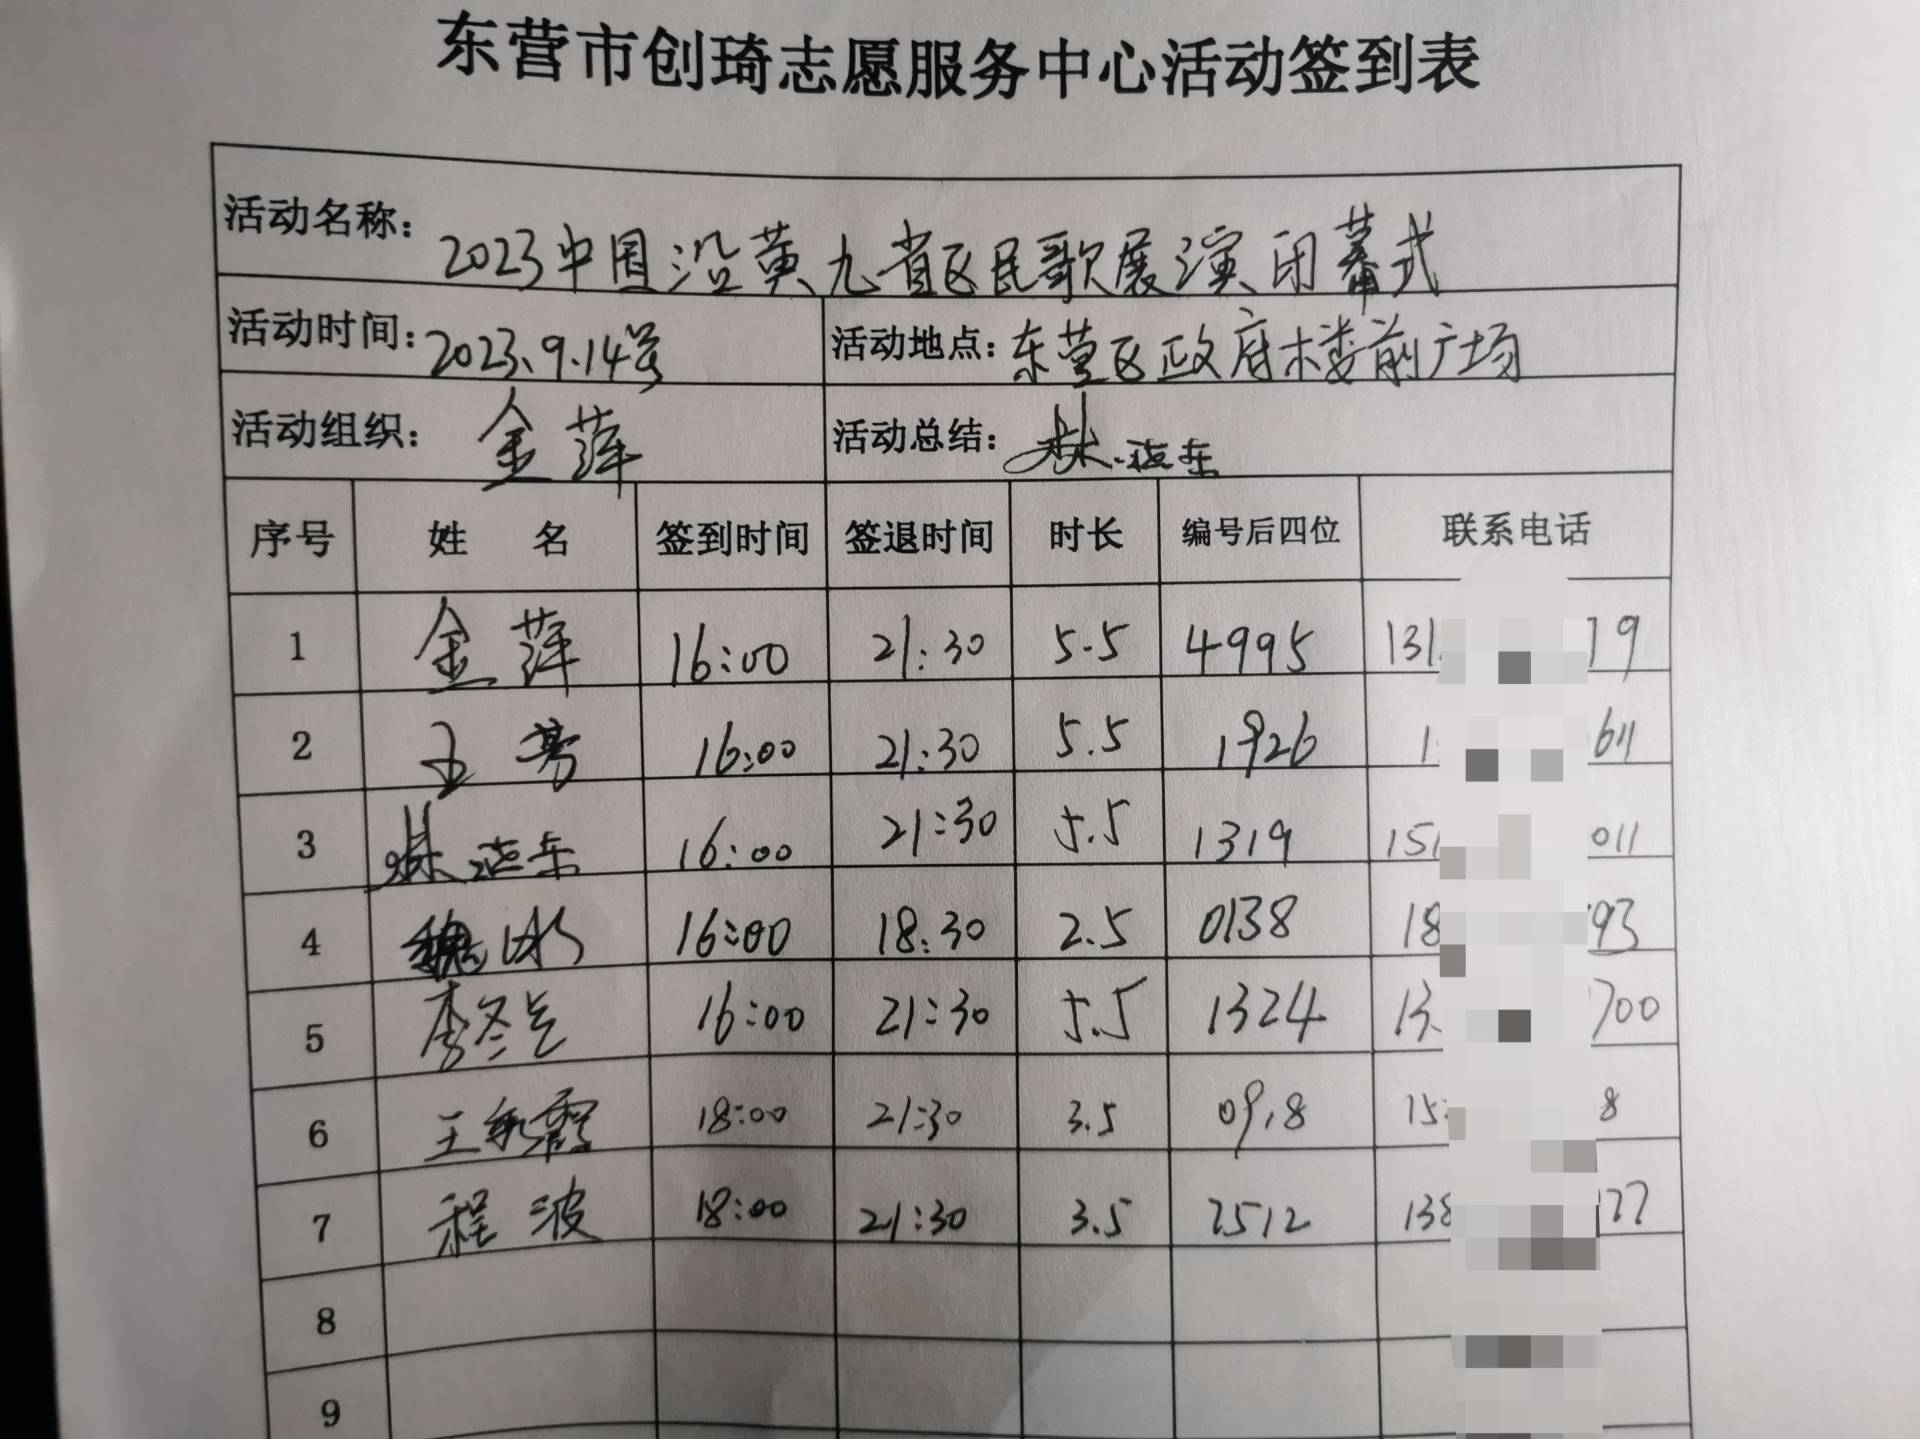 东营市创琦志愿服务中心活动签到表
活动名称: 2023中国沿黄九省区民歌展演闭幕式
活动时间: 2023.9.14号 活动地点: 东营区政府楼前广场
活动组织: 金萍 活动总结:
序号 姓名 签到时间 签退时间 时长 编号后四位 联系电话
1 金萍 16:00 21:30 5.5 4995 131 19
2 王芳 16:00 21:30 5.5 1926 1 611
3 16:00 21:30 5.5 1319 151 011
4 魏冰 16:00 18:30 2.5 0138 18 93
5 李冬 16:00 21:30 5.5 1324 13 700
6 王 霞 18:00 21:30 3.5 0918 15 8
7 程波 18:00 21:30 3.5 2512 138 77
8
9